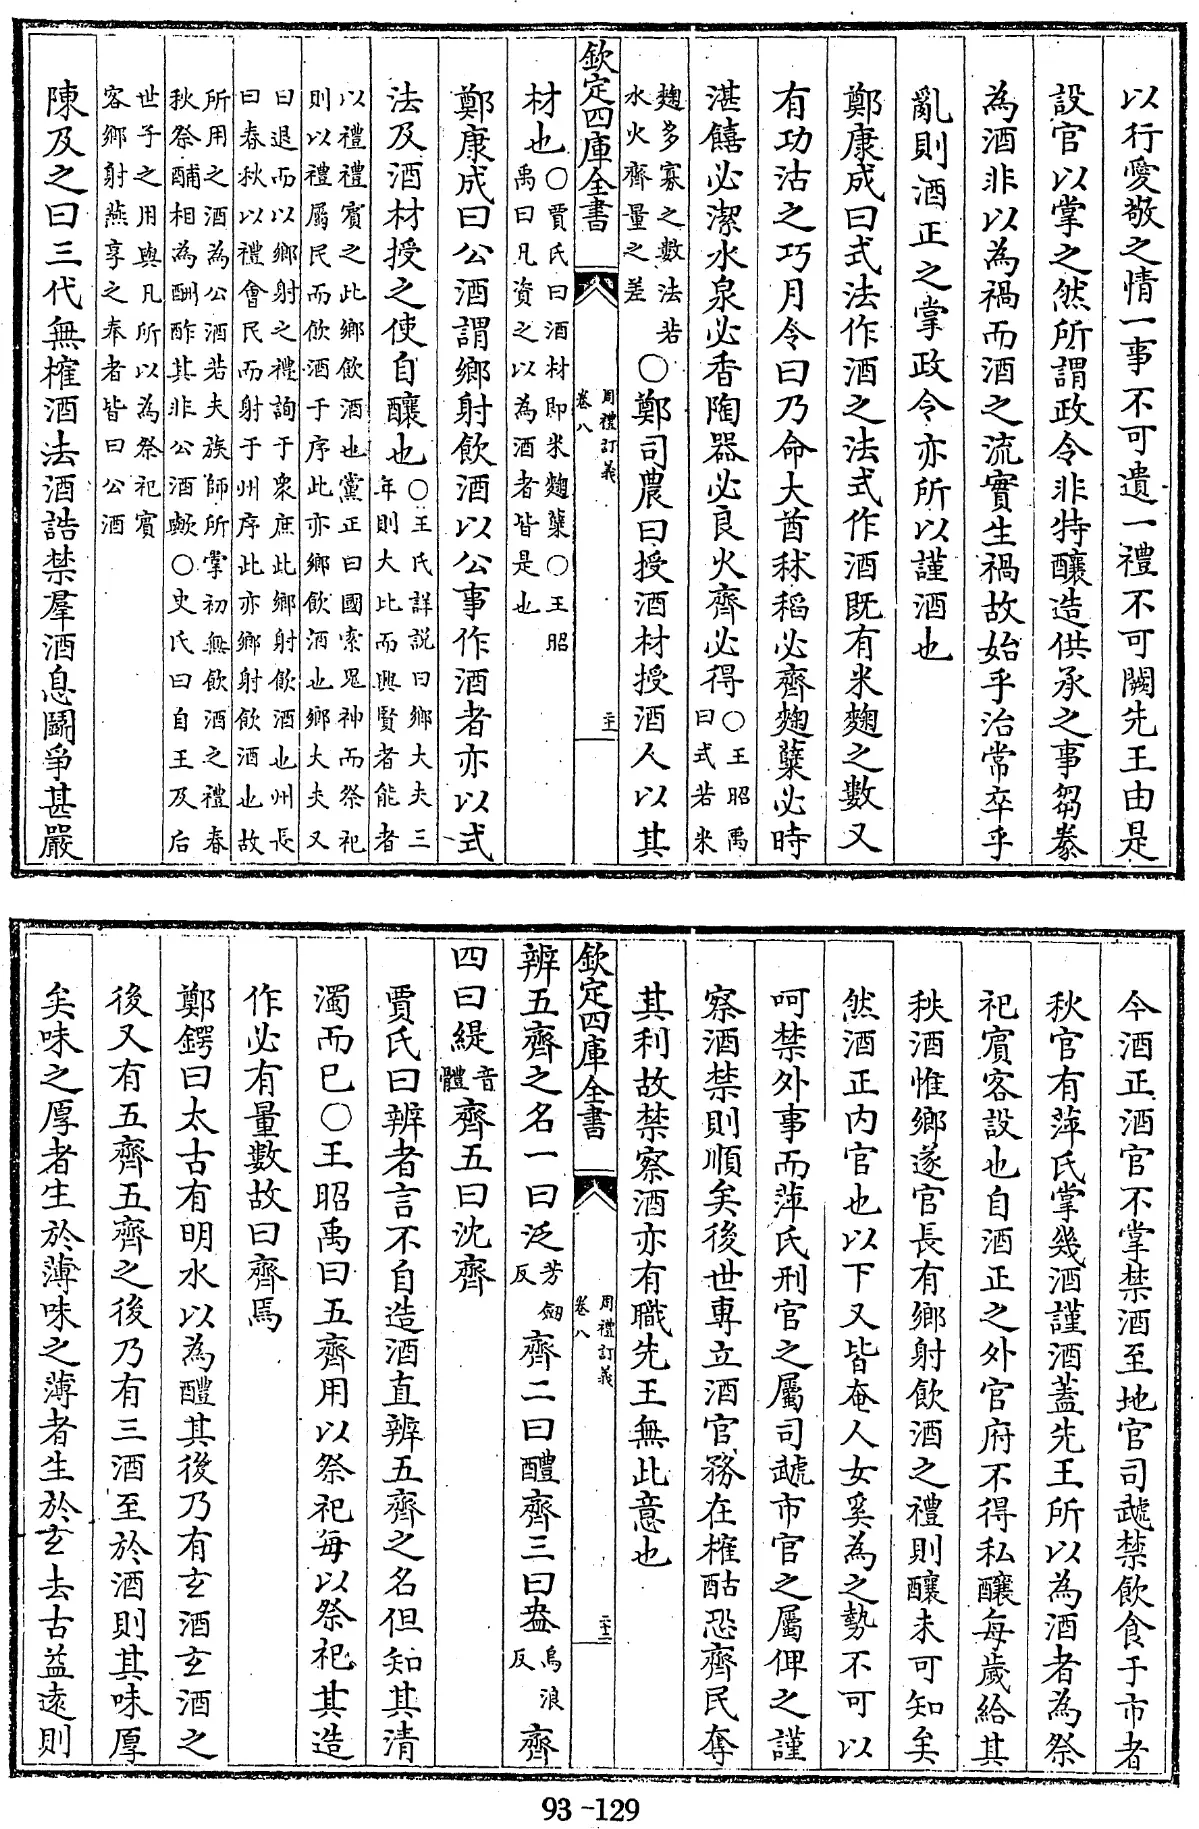 以行愛敬之情一事不可遺一禮不可闕先王由是
設官以掌之然所謂政令非特釀造供承之事芻豢
為酒非以為禍而酒之流實生禍故始乎治常卒乎
亂則酒正之掌政令亦所以謹酒也
鄭康成曰式法作酒之法式作酒既有米麴之數又
有功沽之巧月令曰乃命大酋秫稻必齊麴糵必時
湛饎必潔水泉必香陶器必良火齊必得○王昭禹曰式若米
麴多寡之數法若水火齊量之差○鄭司農曰授酒材授酒人以其
欽定四庫全書 周禮訂義 卷八
材也○賈氏曰酒材即米麴糵○王昭禹曰凡資之以為酒者皆是也
鄭康成曰公酒謂鄉射飲酒以公事作酒者亦以式
法及酒材授之使自釀也○王氏詳説曰鄉大夫三年則大比而興賢者能者
以禮禮賓之此鄉飲酒也黨正曰國索鬼神而祭祀
則以禮屬民而飲酒于序此亦鄉飲酒也鄉大夫又
曰退而以鄉射之禮詢于衆庶此鄉射飲酒也州長
曰春秋以禮會民而射于州序此亦鄉射飲酒也故
所用之酒為公酒若夫族師所掌初無飲酒之禮春
秋祭酺相為酬酢其非公酒歟○史氏曰自王及后
世子之用與凡所以為祭祀賓
客鄉射燕享之奉者皆曰公酒
陳及之曰三代無榷酒法酒誥禁羣酒息鬭爭甚嚴
今酒正酒官不掌禁酒至地官司虣禁飲食于市者
秋官有萍氏掌幾酒謹酒蓋先王所以為酒者為祭
祀賓客設也自酒正之外官府不得私釀每歲給其
秩酒惟鄉遂官長有鄉射飲酒之禮則釀未可知矣
然酒正内官也以下又皆奄人女奚為之勢不可以
呵禁外事而萍氏刑官之屬司虣市官之屬俾之謹
察酒禁則順矣後世專立酒官務在榷酤恐齊民奪
其利故禁察酒亦有職先王無此意也
欽定四庫全書 周禮訂義 卷八
辨五齊之名一曰泛芳劒反齊二曰醴齊三曰盎烏浪反齊
四曰緹音體齊五曰沈齊
賈氏曰辨者言不自造酒直辨五齊之名但知其清
濁而已○王昭禹曰五齊用以祭祀毎以祭祀其造
作必有量數故曰齊焉
鄭鍔曰太古有明水以為醴其後乃有玄酒玄酒之
後又有五齊五齊之後乃有三酒至於酒則其味厚
矣味之厚者生於薄味之薄者生於玄去古益遠則
93-129